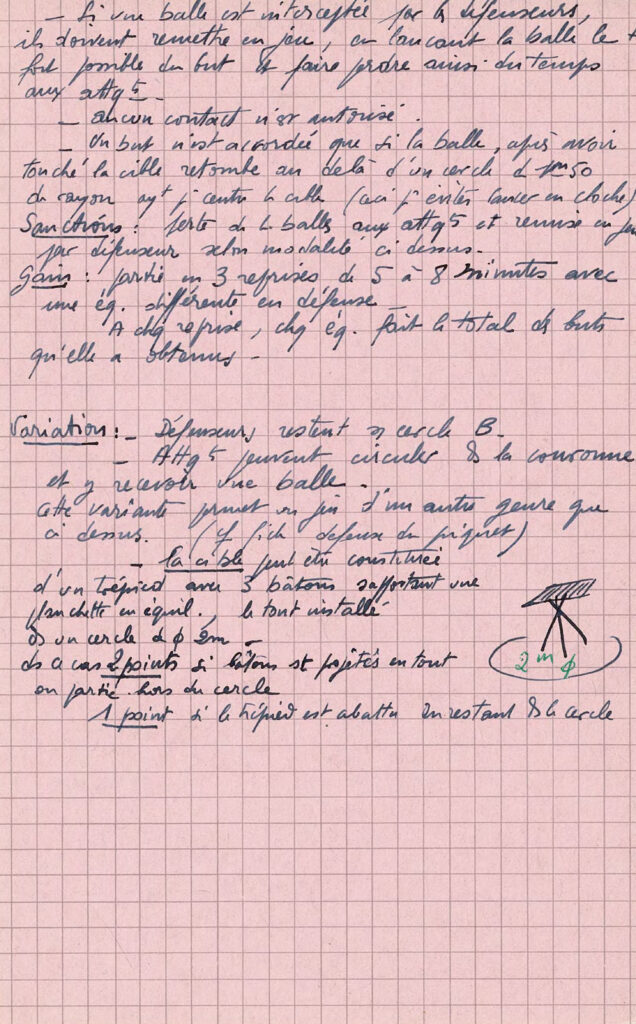 — Si une balle est interceptée par les défenseurs,
ils doivent remettre en jeu, en lançant la balle le +
fort possible du but et faire perdre ainsi du temps
aux attq ts —
— aucun contact n'est autorisé.
— Un but n'est accordé que si la balle, après avoir
touché la cible retombe au delà d'un cercle d 1m50
de rayon ayt pr centre la cible (ceci pr éviter lancer en cloche)
Sanctions : perte de la balle aux attq ts et remise en jeu
par défenseur selon modalité ci dessus.
Gain : partie en 3 reprises de 5 à 8 minutes avec
une éq. différente en défense
A chq reprise, chq éq. fait le total de buts
qu'elle a obtenus —
Variation : — Défenseurs restent cercle B.
— Attq ts peuvent circuler ds la couronne
et y recevoir une balle —
cette variante permet un jeu d'un autre genre que
ci dessus. (cf fich défense du piquet)
— la cible peut être constituée
d'un trépied avec 3 bâtons supportant une
planchette en équil., le tout installé
ds un cercle d φ 2m —
ds ce cas 2 points si bâtons st projetés en tout
ou partie hors du cercle
2 m φ
1 point si le trépied est abattu en restant ds le cercle